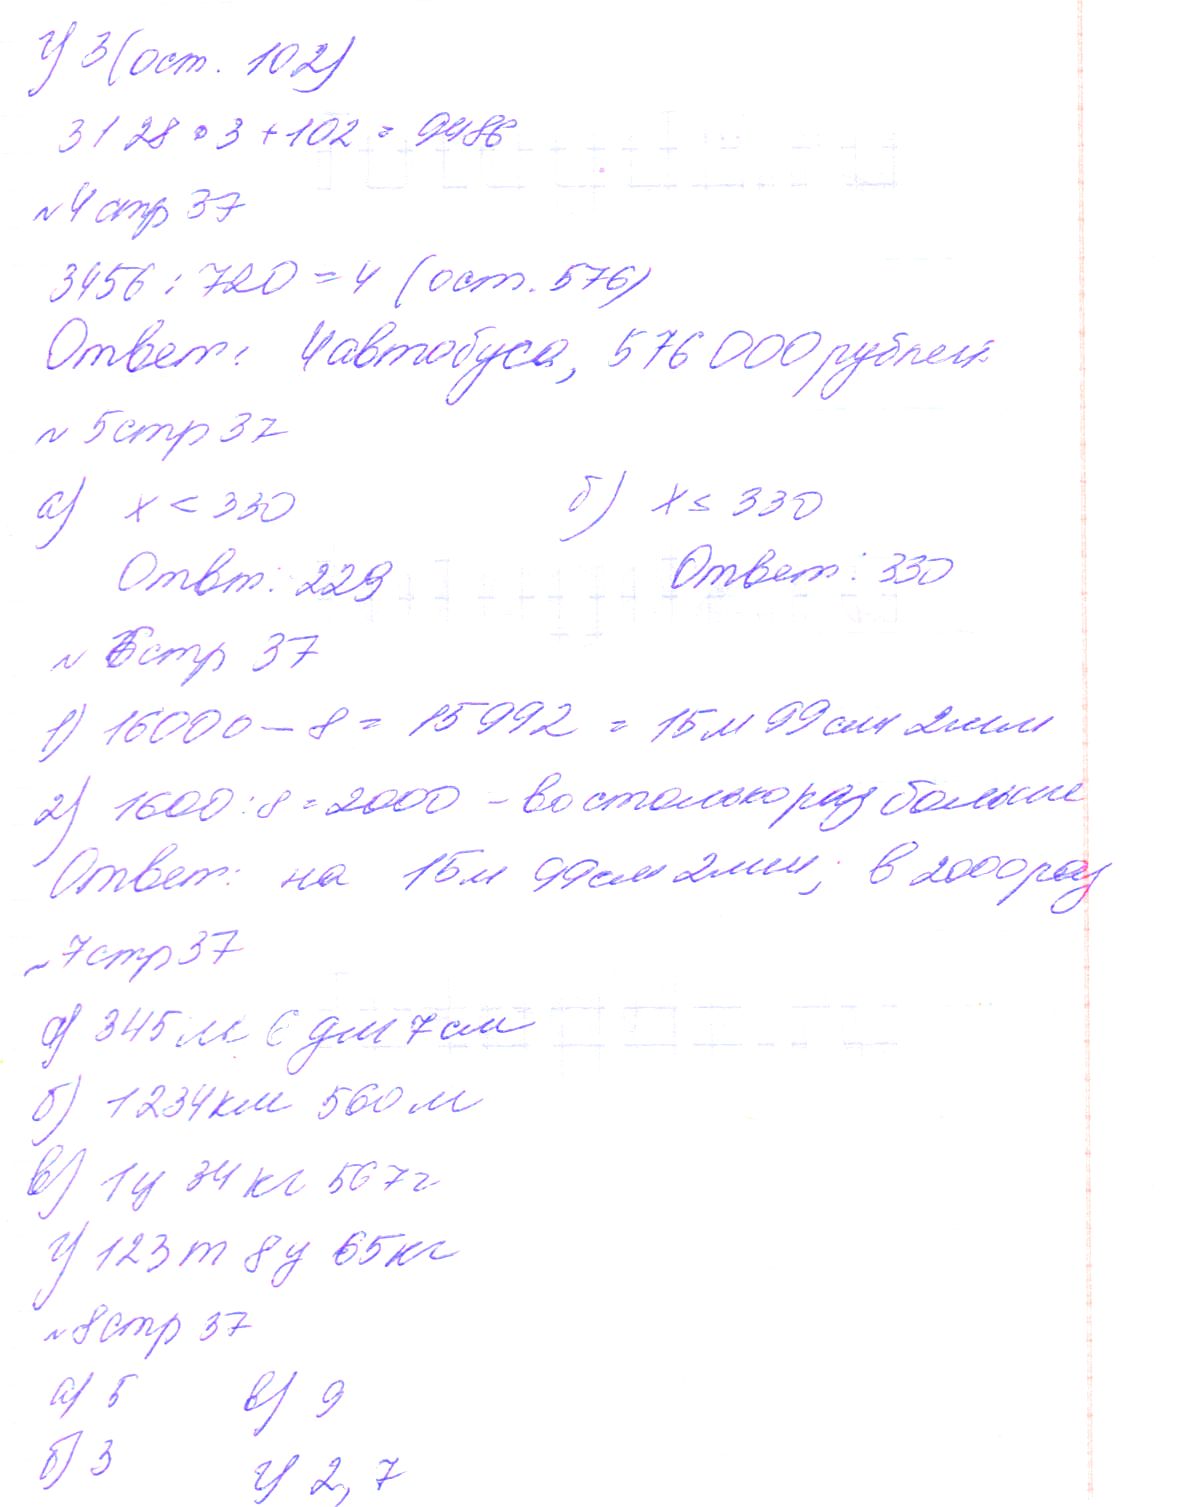 г) 3 (ост. 102)
3128 • 3 + 102 = 9486
~ 4 стр 37
3456 : 720 = 4 (ост. 576)
Ответ: 4 автобуса, 576 000 рублей
~ 5 стр 37
а) x < 330 б) x ≤ 330
Отвт: 229 Ответ: 330
~ 6 стр 37
1) 16000 – 8 = 15992 = 15м 99см 2мм
2) 1600 : 8 = 2000 – во столько раз больше
Ответ: на 15м 99см 2мм; в 2000 раз
~ 7 стр 37
а) 345 м 6 дм 7 см
б) 1234 км 560 м
в) 1ц 34 кг 567г
г) 123 т 8ц 65кг
~ 8 стр 37
а) 5 в) 9
б) 3 г) 2, 7